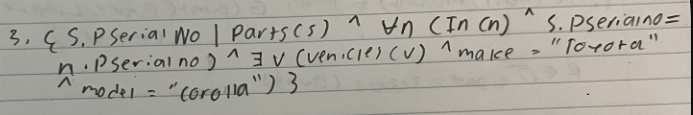 3. { S.PSerialNo | Parts(s) ^ ∀n (In(n) ^ S.Pserialno=
n.Pserialno) ^ ∃v (venicle)(v) ^ make = "Toyota"
^ model = "Corolla") }